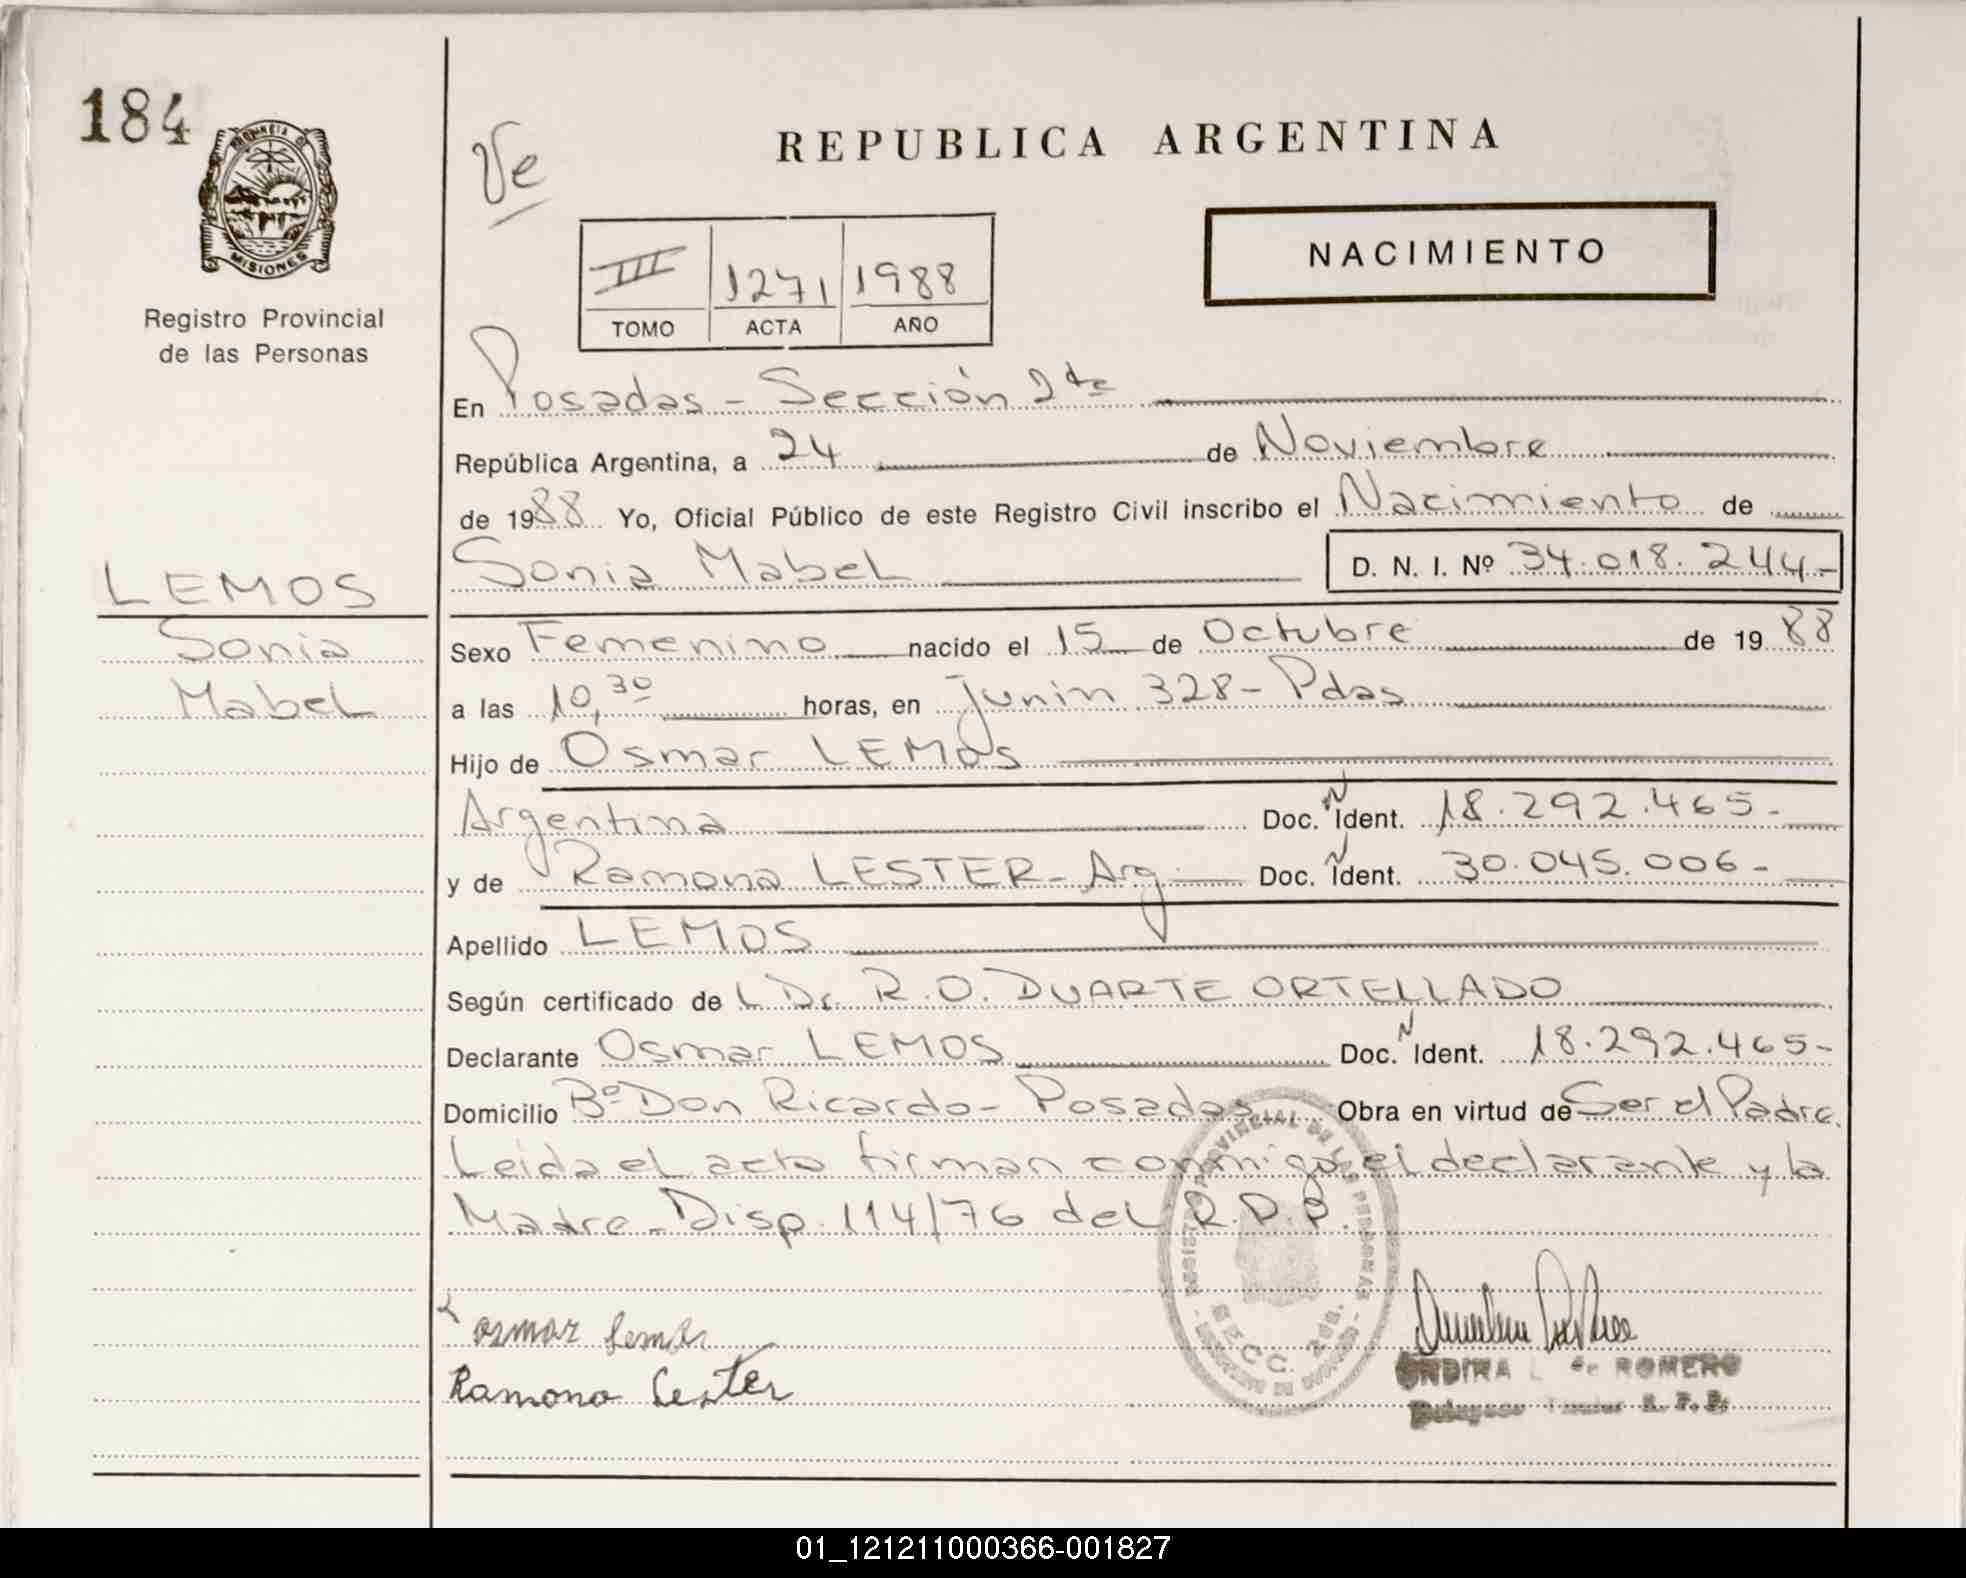 184
PROVINCIA DE
MISIONES
Registro Provincial
de las Personas
Ve
REPUBLICA ARGENTINA
NACIMIENTO
III 1271 1988
TOMO ACTA AÑO
En Posadas - Sección 2da
República Argentina, a 24 de Noviembre
de 1988 Yo, Oficial Público de este Registro Civil inscribo el Nacimiento de
Sonia Mabel D. N. I. Nº 34.018.244-
LEMOS
Sonia
Mabel
Sexo Femenino nacido el 15 de Octubre de 1988
a las 10,30 horas, en Junin 328- Pdas
Hijo de Osmar LEMOS
Argentina Doc. N Ident. 18.292.465-
y de Ramona LESTER- Arg. Doc. N Ident. 30.045.006-
Apellido LEMOS
Según certificado de L Dr. R.O. DUARTE ORTELLADO
Declarante Osmar LEMOS Doc. N Ident. 18.292.465-
Domicilio Bº Don Ricardo- Posadas Obra en virtud de Ser el Padre.
Leida el acta firman conmigo el declarante y la
Madre- Disp. 114/76 del R.D.P.
REGISTRO PROVINCIAL DE LAS PERSONAS
SECC. 2da.
osmar Lemos
Ramona Lester
ONDINA L. de ROMERO
Titular R. P. P.
01_121211000366-001827